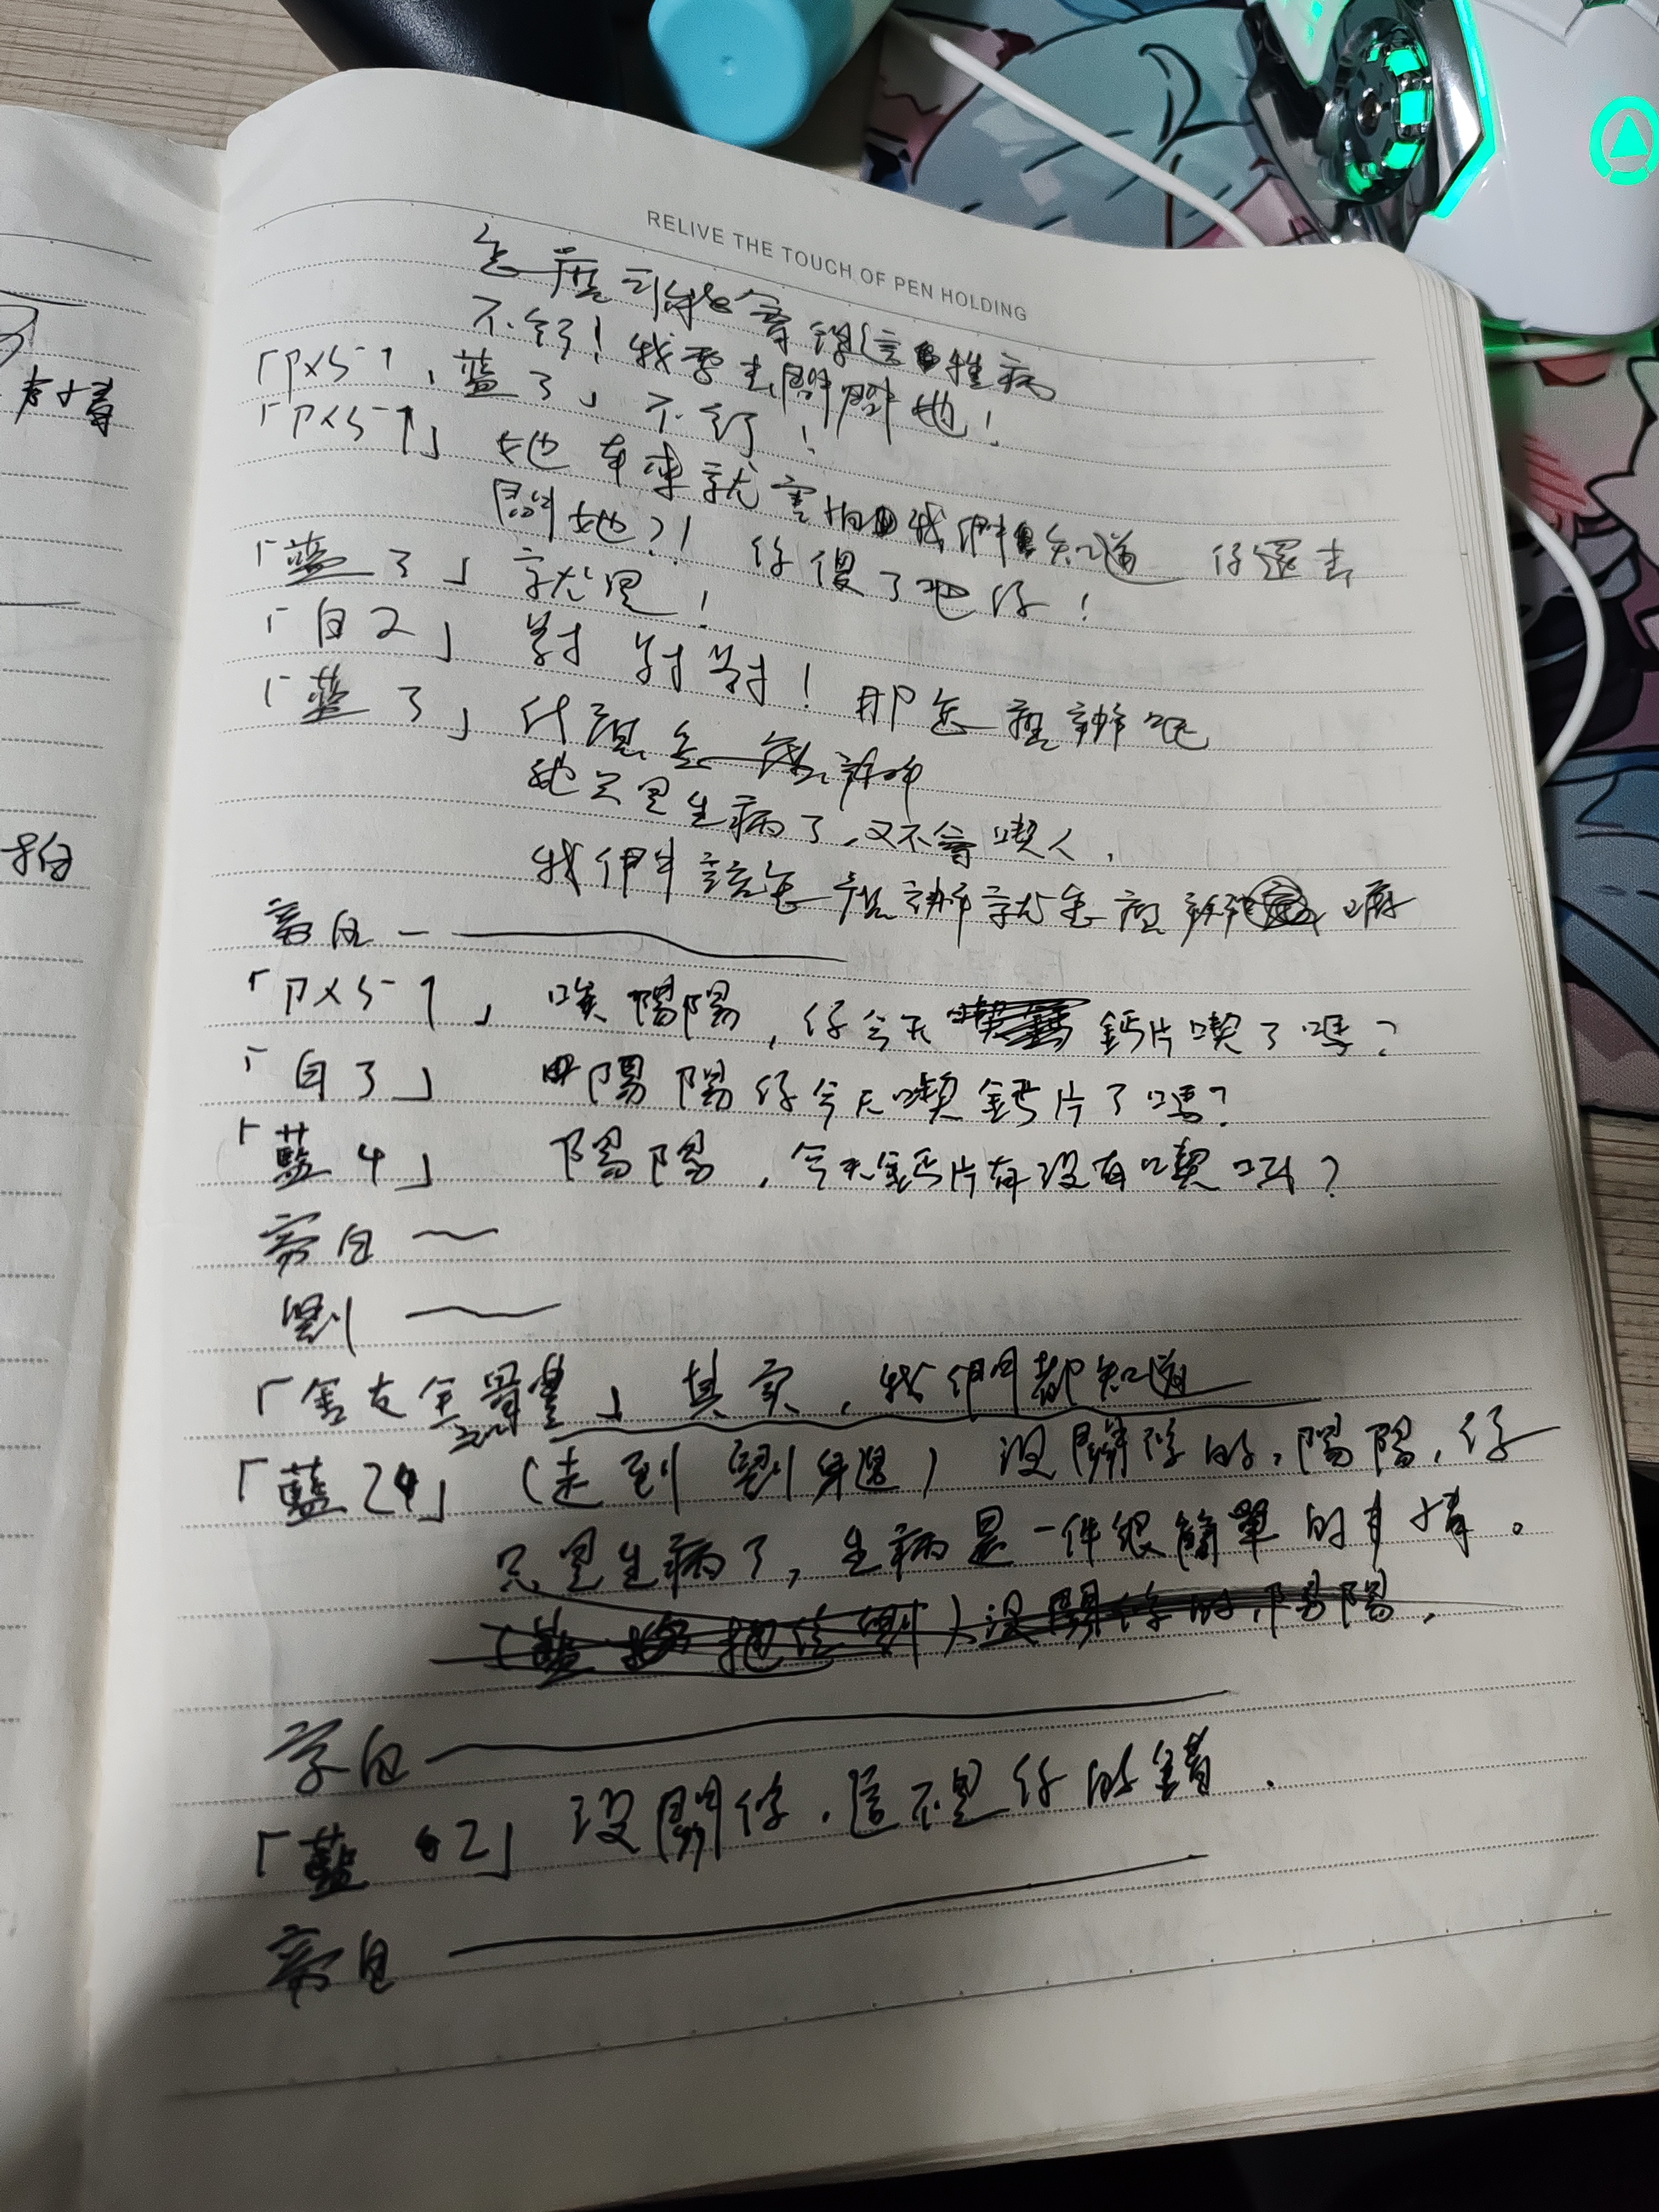 RELIVE THE TOUCH OF PEN HOLDING
怎麼可能會得這種病
不行！我要去問問她！
「ㄗㄨㄢ1，藍3」不行！
「ㄗㄨㄢ1」她本來就害怕我們知道 你還去
問她？！你傻了吧你！
「藍3」就是！
「白2」對對對！那怎麼辦呢
「藍3」什麼怎麼辦
她只是生病了，又不會喫人，
我們該怎麼辦就怎麼辦嘛
旁白
，陽陽，你今天鈣片喫了嗎？
「白3」陽陽你今天喫鈣片了嗎？
「藍4」陽陽，今天鈣片有沒有喫啊？
旁白
劉
「舍友全體」其实，我們都知道
「藍24」（走到劉身邊）沒關係的，陽陽，你
只是生病了，生病是一件很簡單的事情。
旁白
「藍2」沒關係，這不是你的錯．
旁白
事情
怕